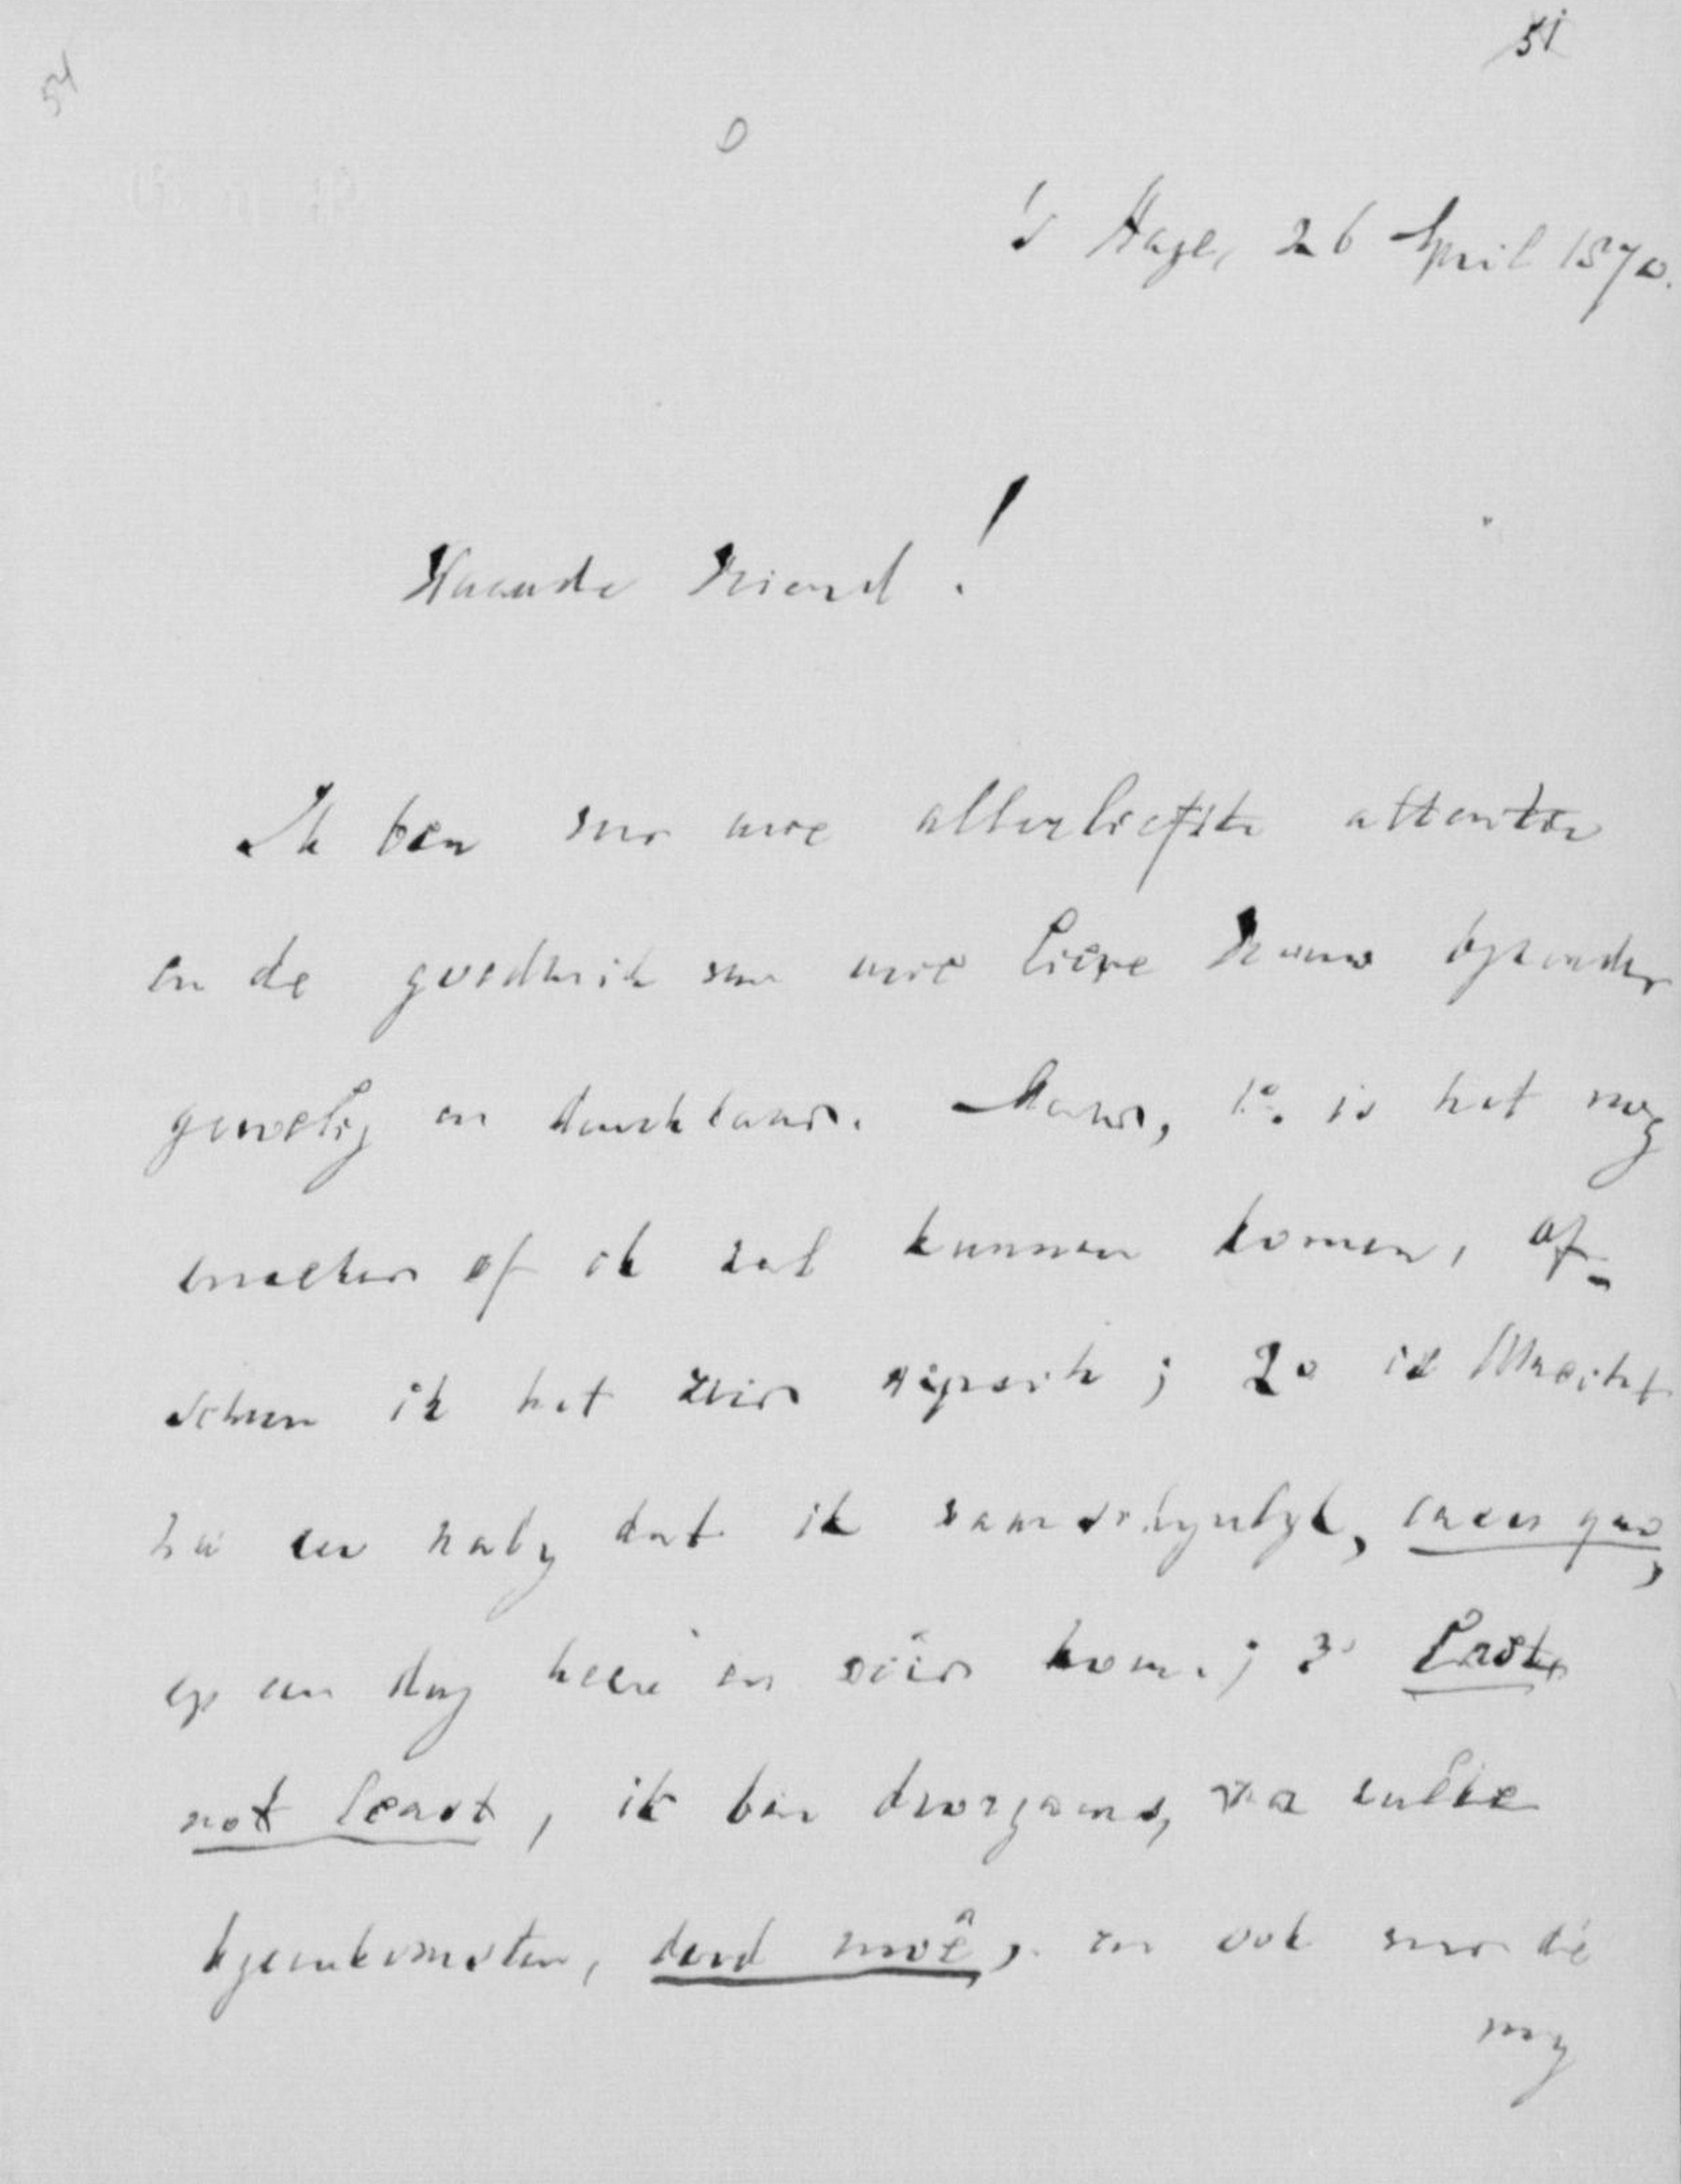 51
54
0
's Hage, 26 April 1870.
Waarde Vriend!
Ik ben voor uwe allerliefste attentie
en de goedheid van uwe lieve vrouw byzonder
gevoelig en dankbaar. Maar, 1o. is het nog
onzeker of ik zal kunnen komen, of-
schoon ik het zeer wensch; 2o is Utrecht
zoo naby dat ik waarschynlyk, casu quo,
op een dag heen en weêr kom; 3o Last,
not least, ik ben doorgaans, na zulke
byeenkomsten, dood moê, en ook voor de
my